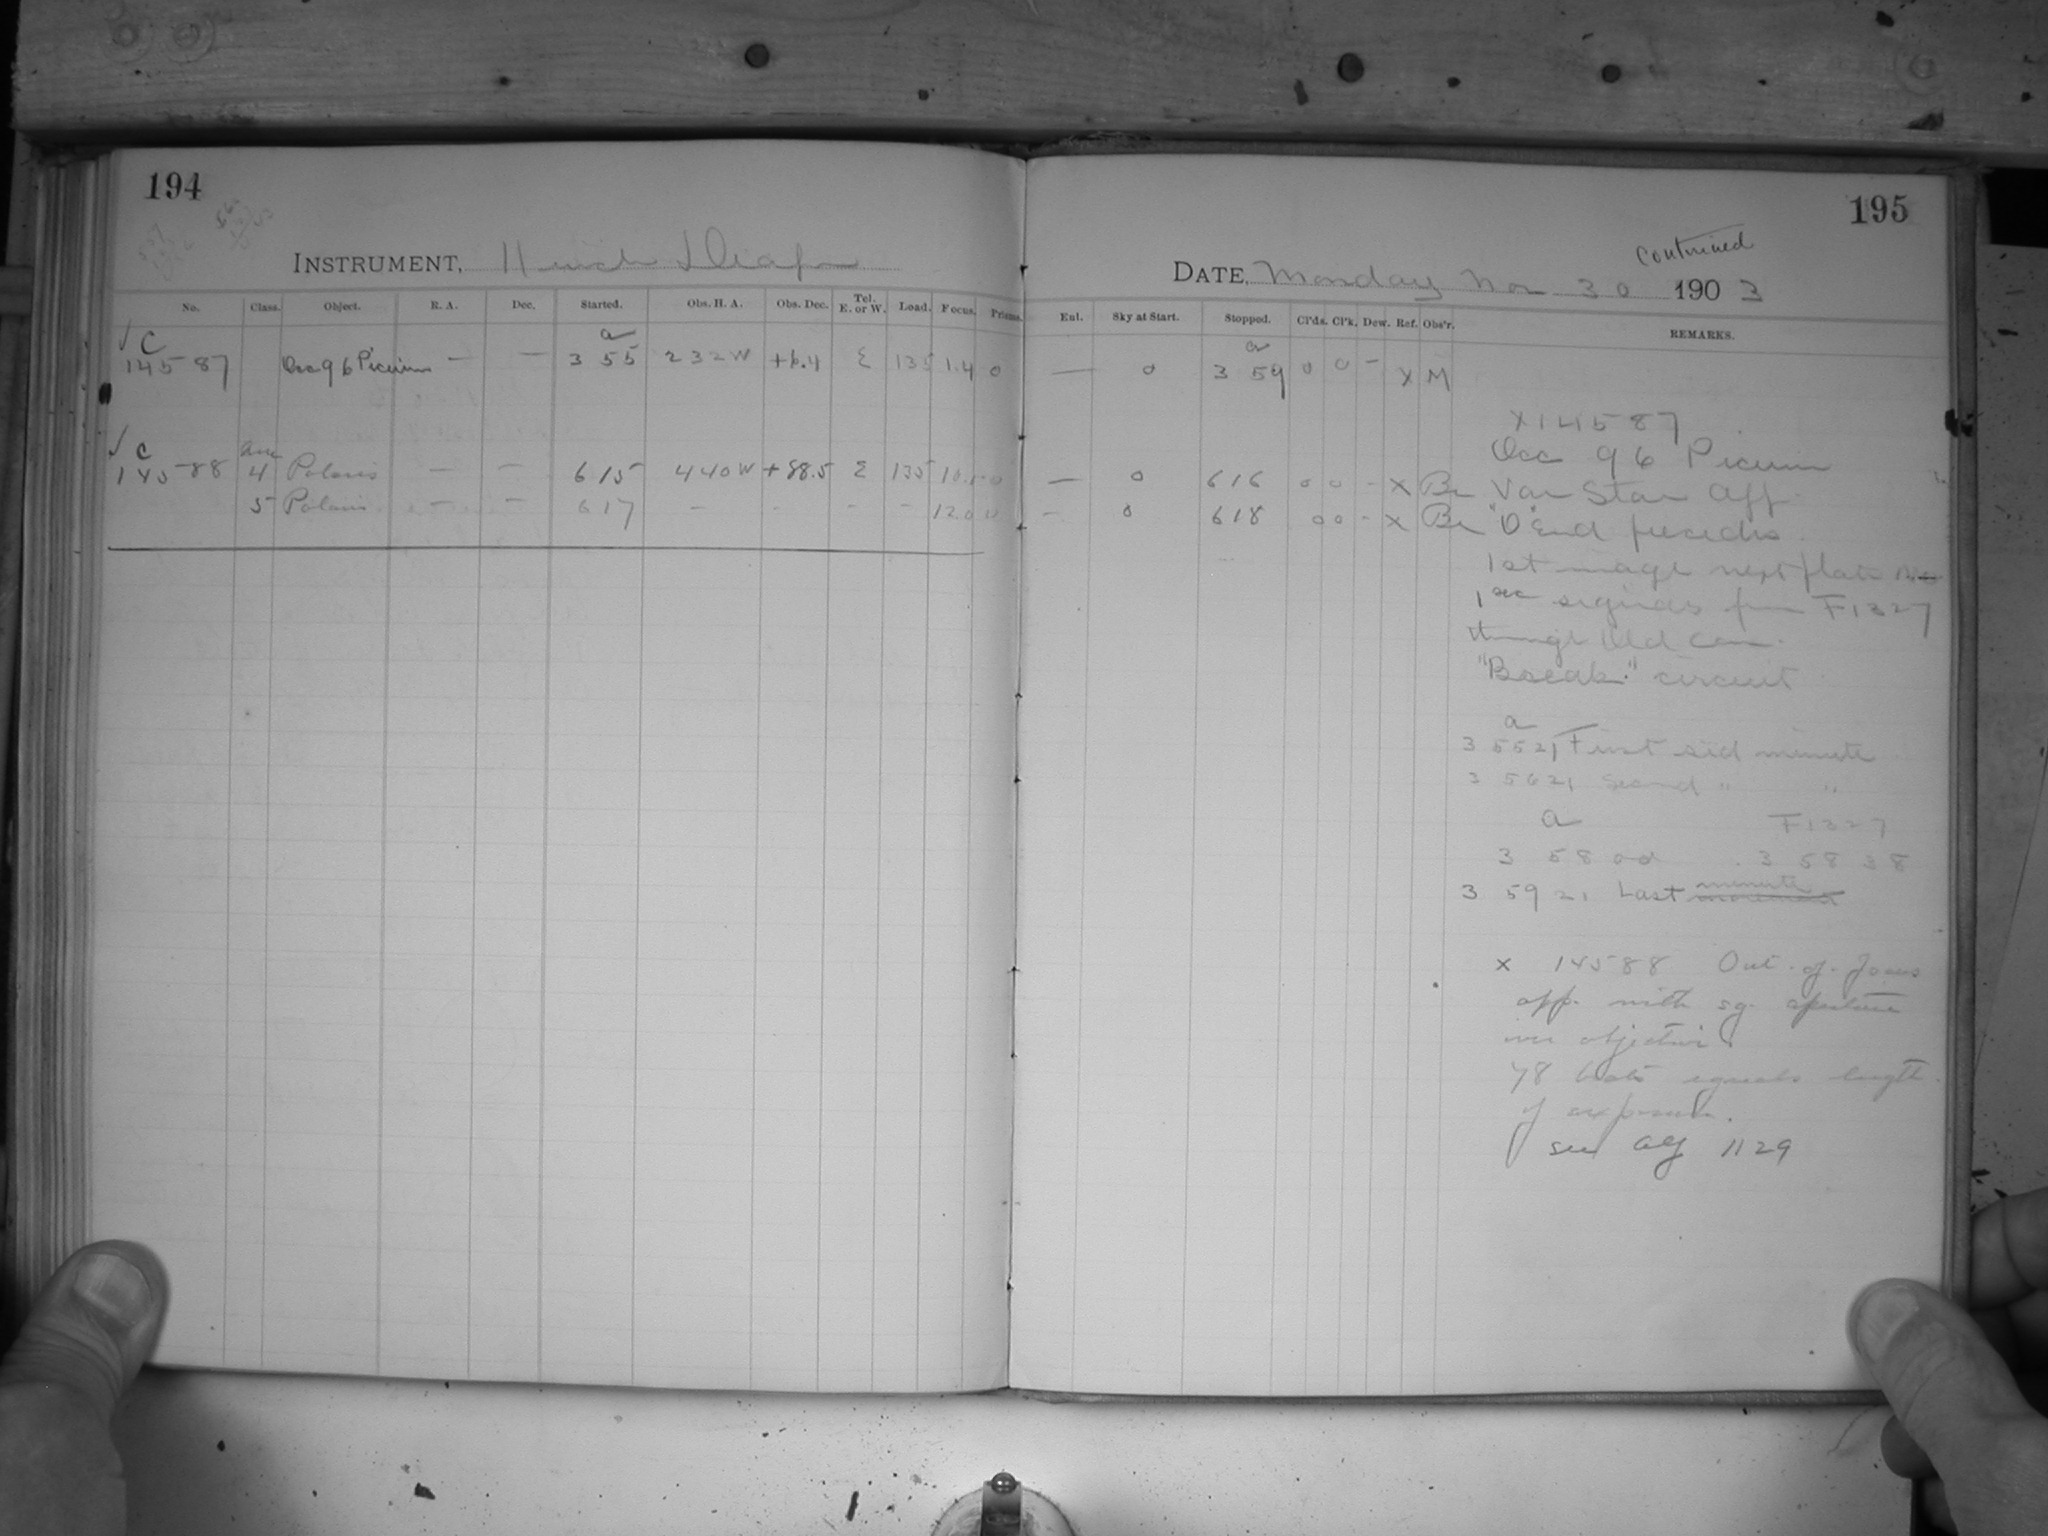 194
INSTRUMENT, 11 inch
No. Class. Object. R. A. Dec. Started. Obs. H. A. Obs. Dec. Tel. E. or W. Load. Focus. Prisms.
√ C a
14587 Occ 96 Piscium — — 3 55 2 32 W +6.4 E 135 1.4 0
√ C
14588 4 Polaris — — 6 15 4 40 W +88.5 E 135 10.0 0
5 Polaris — — 6 17 - - - - 12.0 0
195
continued
DATE, Monday Nov 30 1903
Ext. Sky at Start. Stopped. Cl'ds. Cl'k. Dew. Ref. Obs'r. REMARKS.
a
— 0 3 59 0 0 - X M
X 14587
Occ 96 Piscium
— 0 6 16 0 0 - X Br
Var Star App.
- 0 6 18 0 0 - X Br
"O" End precedes
1st image next plate
1 sec signals from F1327
through Old
"Break" circuit
a
3 55 21 First sid minute
3 56 21 Second " "
a F1327
3 58 3 58 38
3 59 21 Last minute
X 14588 Out-of-focus
app. with sq. aperture
over objective.
78 beats equals length
of exposure.
see 1129